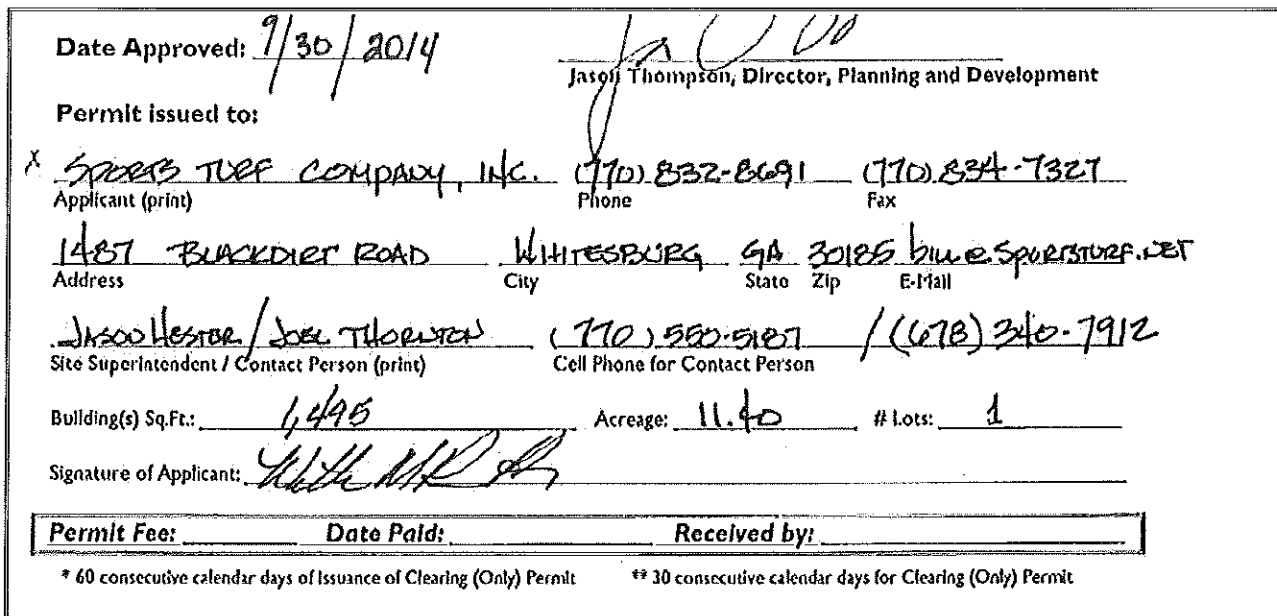 Date Approved: 9/30/2014
Jason Thompson, Director, Planning and Development
Permit issued to:
X SPORTS TURF COMPANY, INC. (770) 832-8691 (770) 834-7327
Applicant (print) Phone Fax
1487 BLACKDIRT ROAD WHITESBURG GA 30185 bill@sportsturf.net
Address City State Zip E-Mail
JASON HESTER / JOEL THORNTON (770) 550-5187 / (678) 340-7912
Site Superintendent / Contact Person (print) Cell Phone for Contact Person
Building(s) Sq.Ft.: 1,495 Acreage: 11.40 # Lots: 1
Signature of Applicant:
Permit Fee: Date Paid: Received by:
* 60 consecutive calendar days of Issuance of Clearing (Only) Permit ** 30 consecutive calendar days for Clearing (Only) Permit